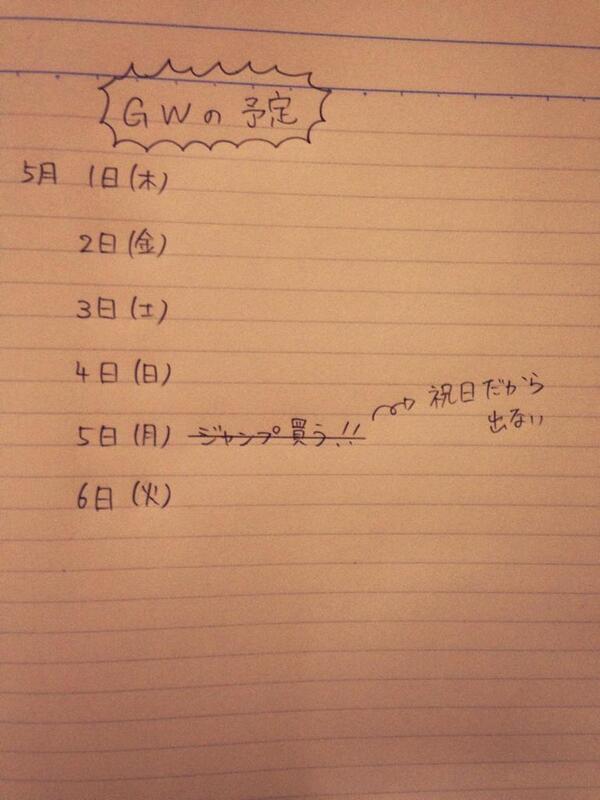 GWの予定
5月 1日(木)
2日(金)
3日(土)
4日(日)
5日(月) ジャンプ買う!!
祝日だから
出ない
6日(火)